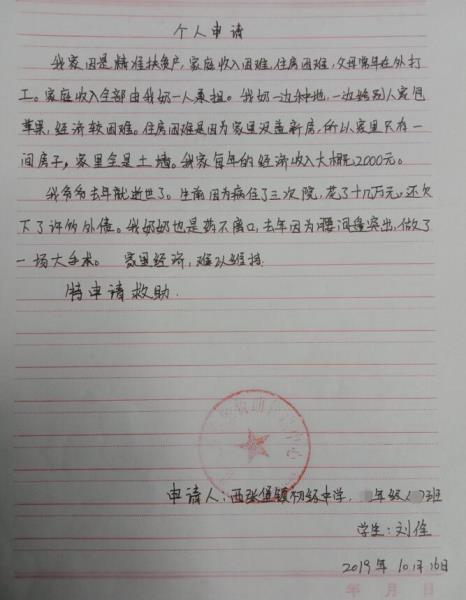 个人申请
我家因是精准扶贫户，家庭收入困难，住房困难，父母常年在外打
工。家庭收入全部由我奶一人承担。我奶一边种地，一边给别人家包
苹果，经济较困难。住房困难是因为家里没盖新房，所以家里只有一
间房子，家里全是土墙。我家每年的经济收入大概2000元。
我爷爷去年就逝世了。生前因为病住了三次院，花了十几万元，还欠
下了许多外债。我奶奶也是药不离口，去年因为腰间盘突出，做了
一场大手术。 家里经济，难以维持.
特申请救助.
申请人：西张堡镇初级中学， 年级 班
学生：刘佳
2019年10月16日
年 月 日